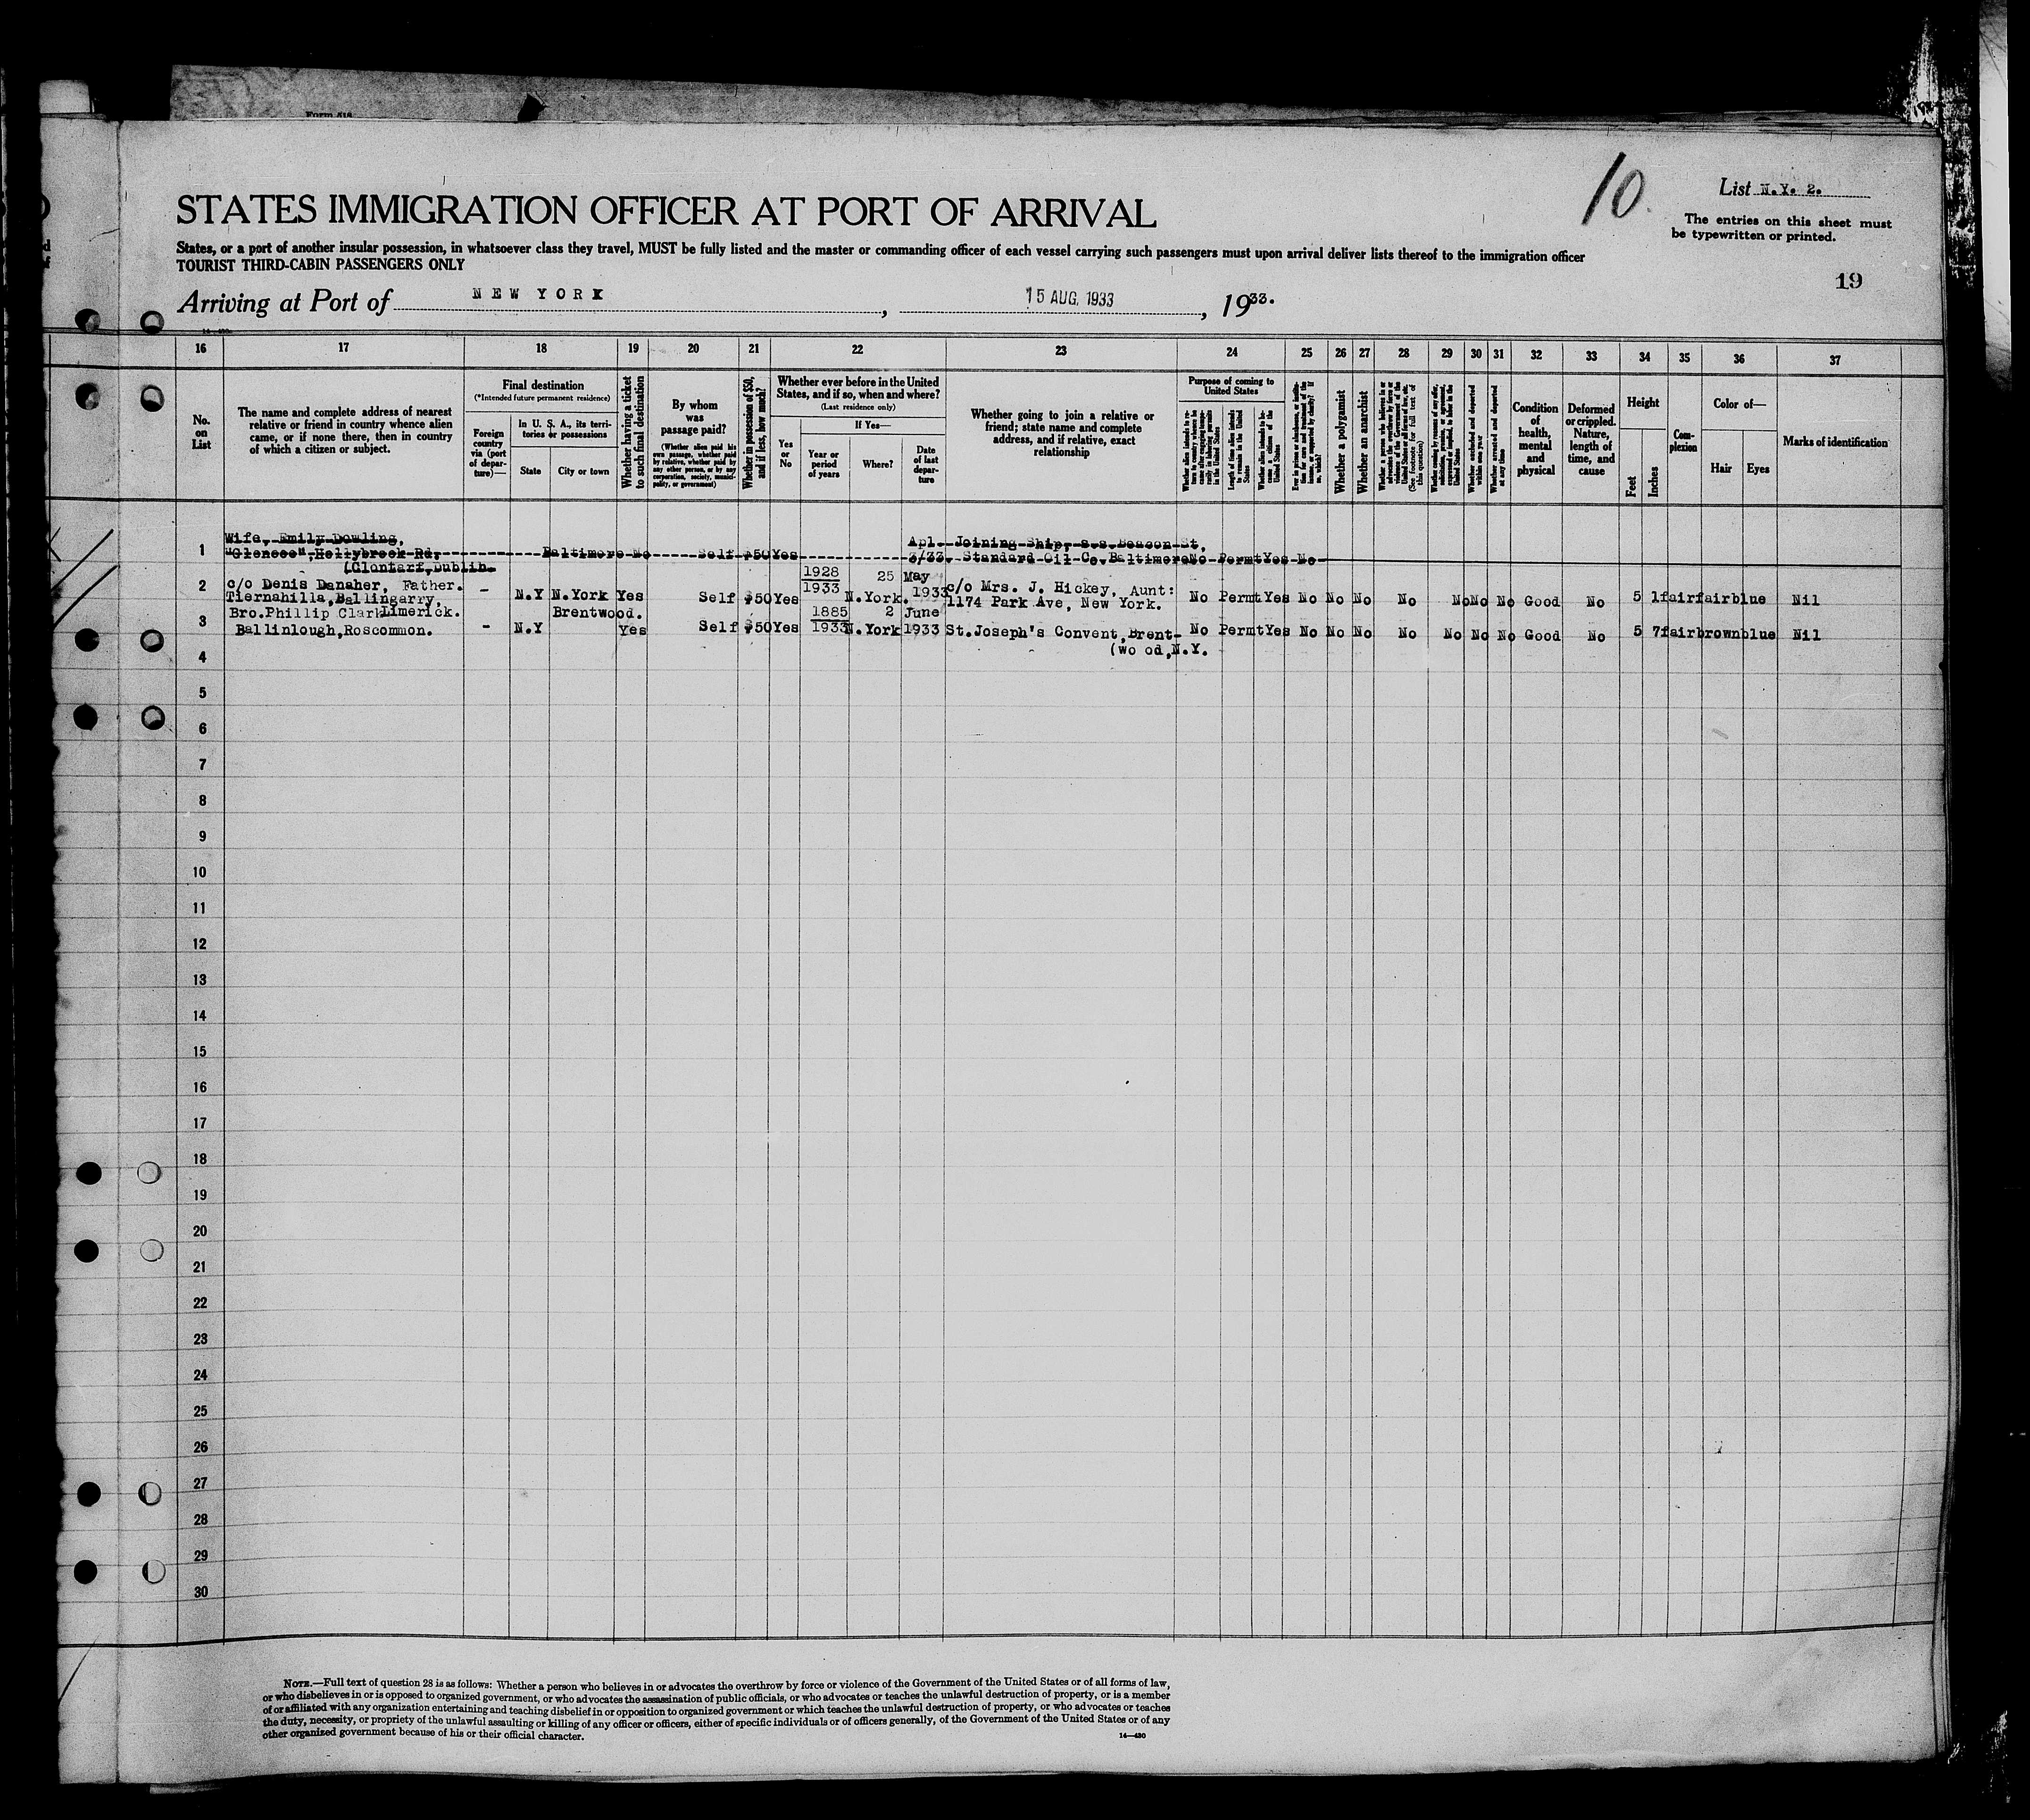 Form 618
10
List N.Y. 2.
STATES IMMIGRATION OFFICER AT PORT OF ARRIVAL
The entries on this sheet must
be typewritten or printed.
States, or a port of another insular possession, in whatsoever class they travel, MUST be fully listed and the master or commanding officer of each vessel carrying such passengers must upon arrival deliver lists thereof to the immigration officer
TOURIST THIRD-CABIN PASSENGERS ONLY
19
Arriving at Port of NEW YORK, 15 AUG. 1933, 1933.
16 17 18 19 20 21 22 23 24 25 26 27 28 29 30 31 32 33 34 35 36 37
No. on List
The name and complete address of nearest relative or friend in country whence alien came, or if none there, then in country of which a citizen or subject.
Final destination
(*Intended future permanent residence)
Foreign country via (port of departure)—
In U. S. A., its territories or possessions
State
City or town
Whether having a ticket to such final destination
By whom was passage paid?
(Whether alien paid his own passage, whether paid by relative, whether paid by any other person, or by any corporation, society, municipality, or government)
Whether in possession of $50, and if less, how much?
Whether ever before in the United States, and if so, when and where?
(Last residence only)
Yes or No
If Yes—
Year or period of years
Where?
Date of last departure
Whether going to join a relative or friend; state name and complete address, and if relative, exact relationship
Purpose of coming to United States
Length of time alien intends to remain in the United States
Whether a polygamist
Whether an anarchist
(See footnote for full text of this question)
Whether arrested and deported at any time
Condition of health, mental and physical
Deformed or crippled. Nature, length of time, and cause
Height
Feet
Inches
Complexion
Color of—
Hair
Eyes
Marks of identification
Wife, Emily Dowling,
1 "Glencoe", Hollybrook Rd, Baltimore No Self $50 Yes Apl. 3/33. Joining Ship, s.s. Beacon St,
(Clontarf, Dublin. Standard Oil Co. Baltimore No Permt Yes No
2 c/o Denis Danaher, Father. - N.Y N.York Yes Self $50 Yes 1928 1933 N.York. 25 May 1933 c/o Mrs. J. Hickey, Aunt: No Permt Yes No No No No No No No Good No 5 1 fair fair blue Nil
Tiernahilla, Ballingarry, 1174 Park Ave, New York.
Limerick.
3 Bro. Phillip Clark Brentwood.
Ballinlough, Roscommon. - N.Y Yes Self $50 Yes 1885 1933 N.York 2 June 1933 St. Joseph's Convent, Brent- No Permt Yes No No No No No No No Good No 5 7 fair brown blue Nil
(wo od, N.Y.
4
5
6
7
8
9
10
11
12
13
14
15
16
17
18
19
20
21
22
23
24
25
26
27
28
29
30
NOTE.—Full text of question 28 is as follows: Whether a person who believes in or advocates the overthrow by force or violence of the Government of the United States or of all forms of law,
or who disbelieves in or is opposed to organized government, or who advocates the assassination of public officials, or who advocates or teaches the unlawful destruction of property, or is a member
of or affiliated with any organization entertaining and teaching disbelief in or opposition to organized government or which teaches the unlawful destruction of property, or who advocates or teaches
the duty, necessity, or propriety of the unlawful assaulting or killing of any officer or officers, either of specific individuals or of officers generally, of the Government of the United States or of any
other organized government because of his or their official character.
14—430